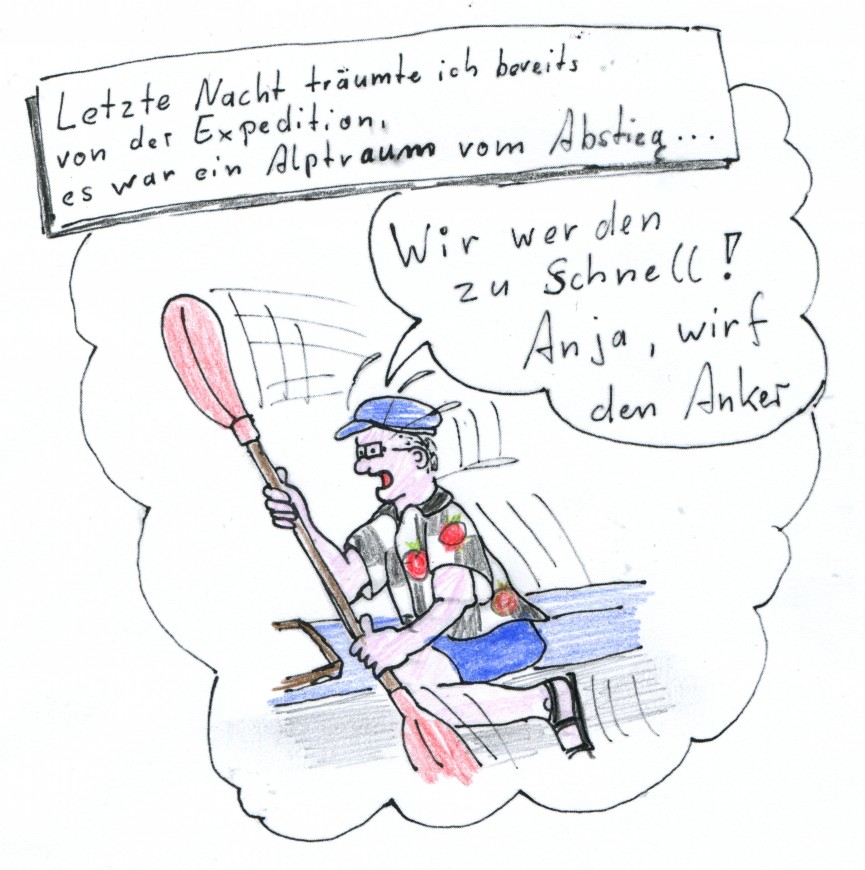 Letzte Nacht träumte ich bereits
von der Expedition,
es war ein Alptraum vom Abstieg...
Wir werden
zu Schnell!
Anja, wirf
den Anker